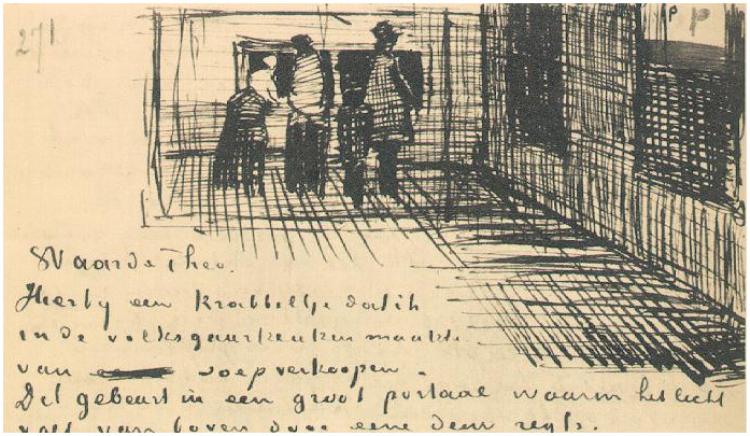 271
P P
Waarde Theo.
Hierby een krabbeltje dat ik
in de volksgaarkeuken maakte
van soepverkoopen.
Dit gebeurt in een groot portaal waarin het licht
valt van boven door eene deur regts.